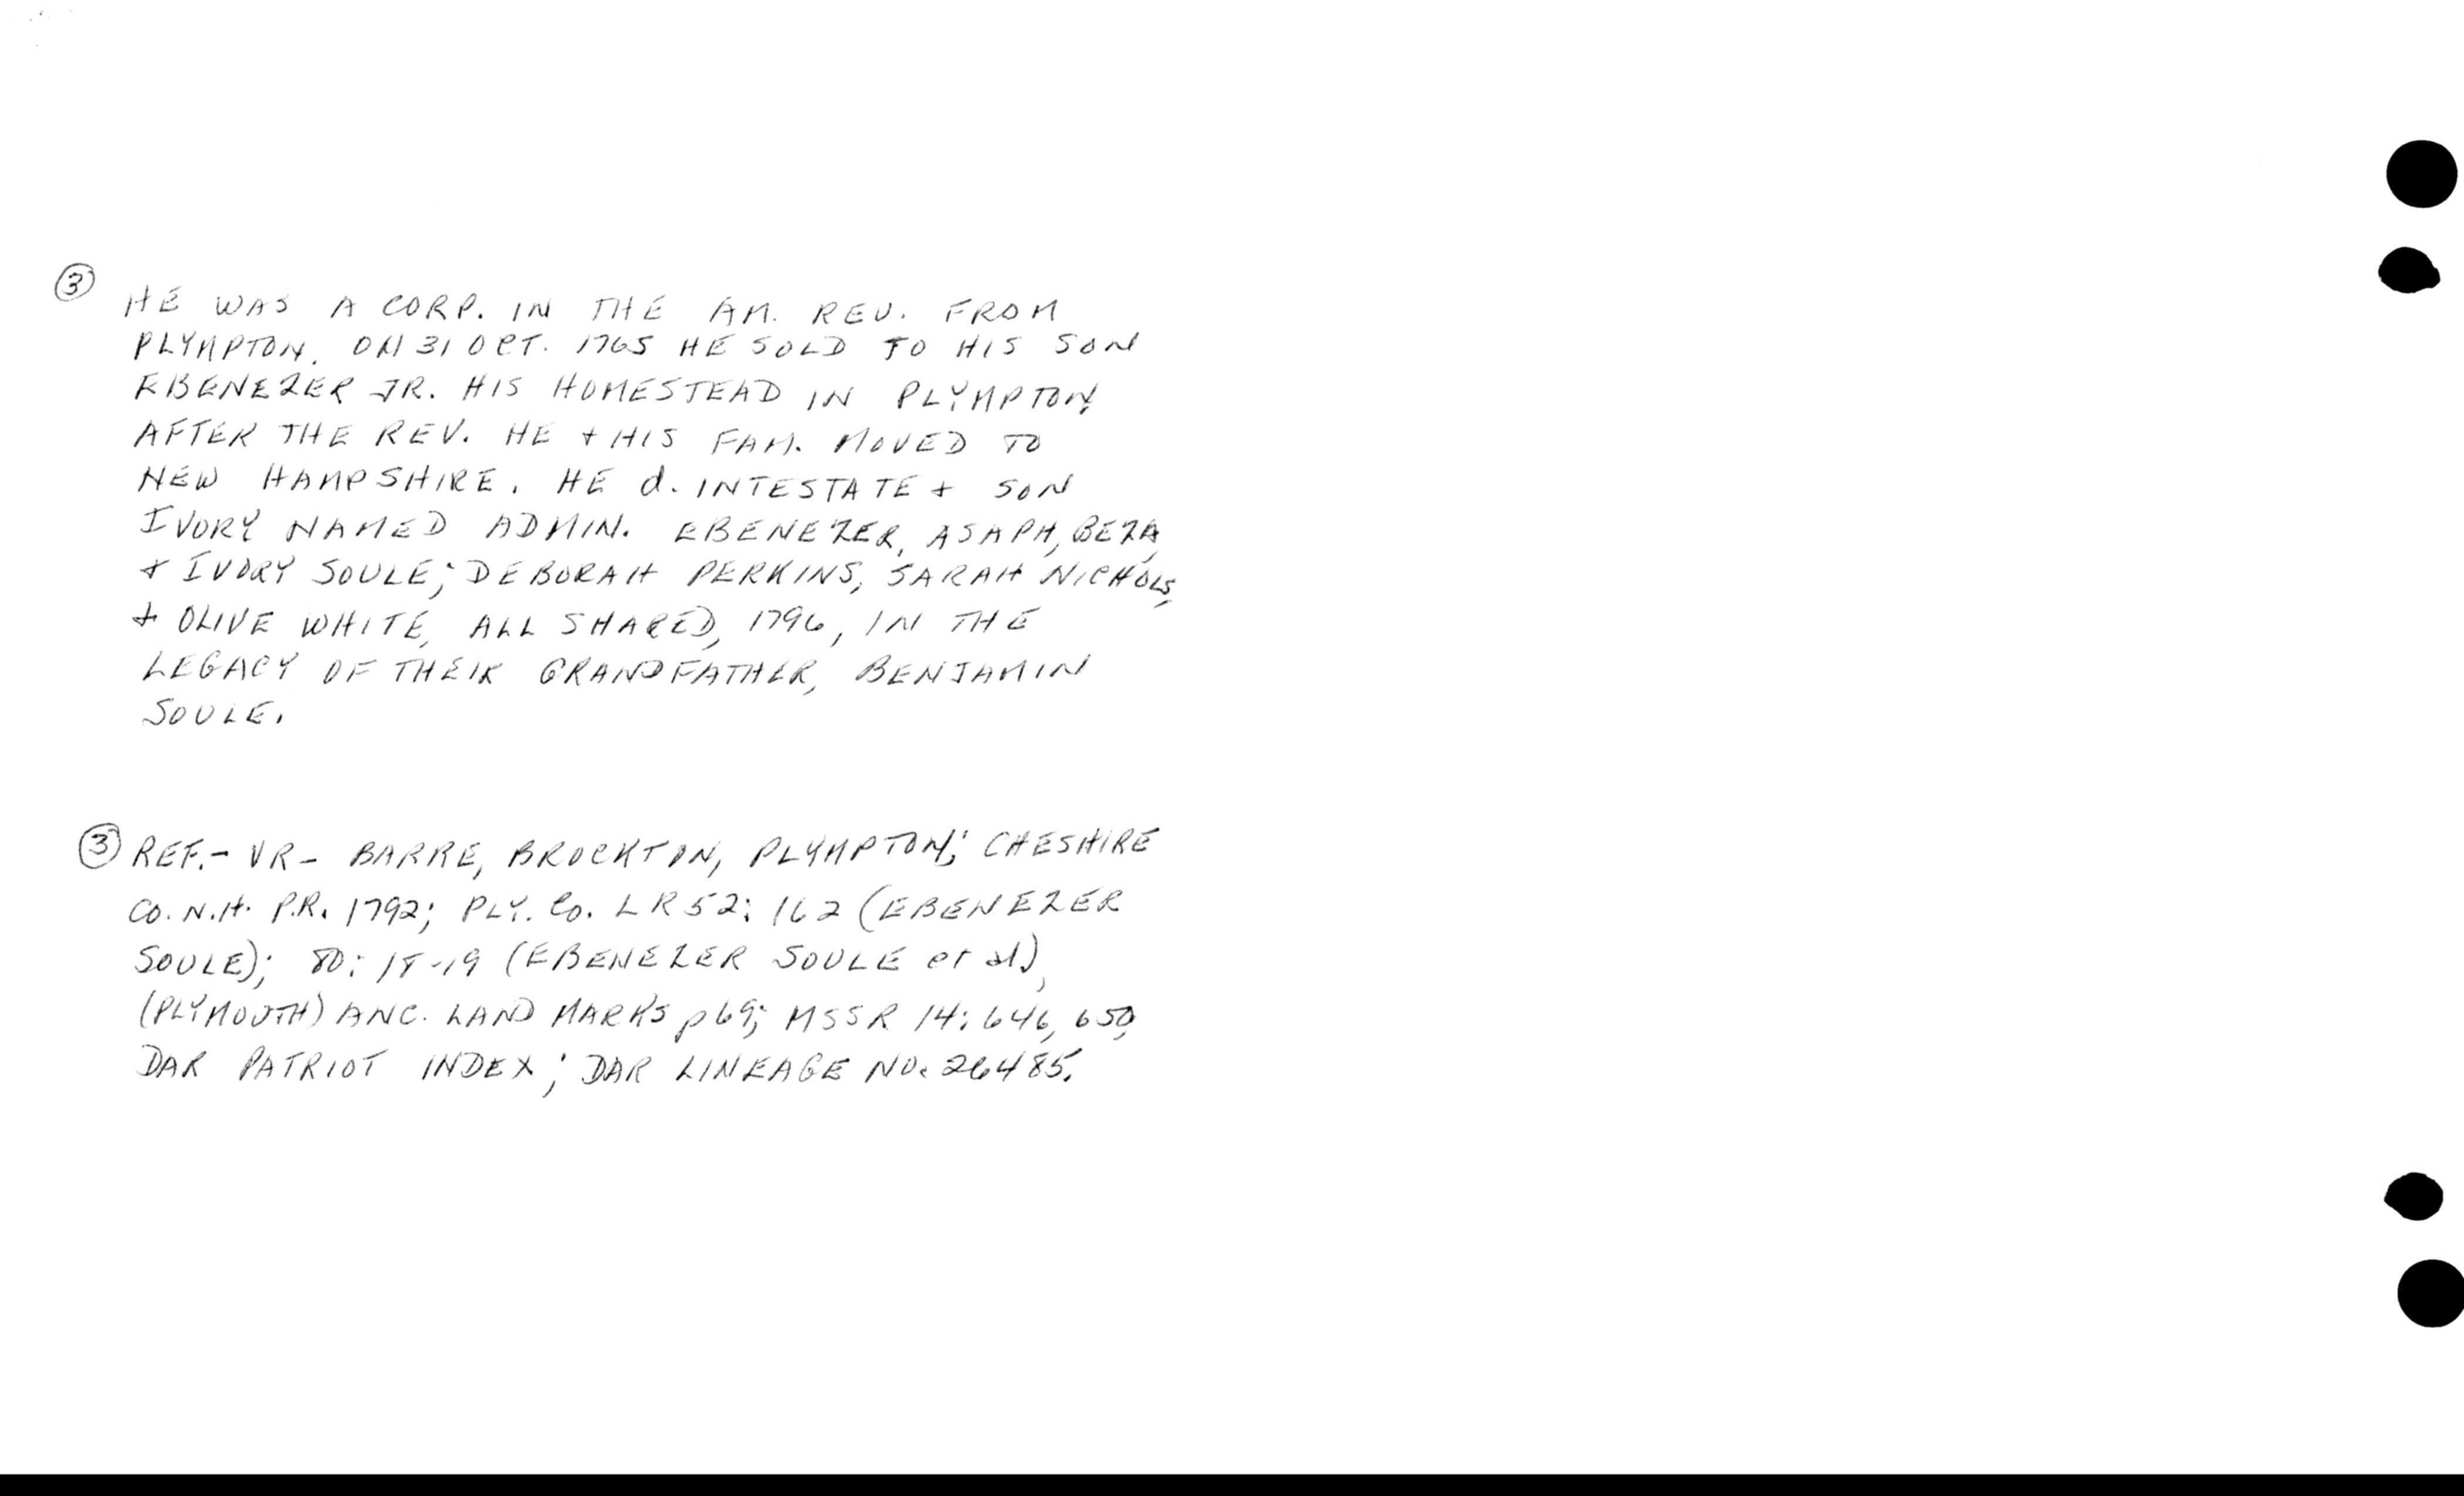 ③ HE WAS A CORP. IN THE AM. REV. FROM
PLYMPTON. ON 31 OCT. 1765 HE SOLD TO HIS SON
EBENEZER JR. HIS HOMESTEAD IN PLYMPTON.
AFTER THE REV. HE + HIS FAM. MOVED TO
NEW HAMPSHIRE. HE d. INTESTATE + SON
IVORY NAMED ADMIN. EBENEZER, ASAPH, BEZA,
+ IVORY SOULE; DEBORAH PERKINS, SARAH NICHOLS,
+ OLIVE WHITE, ALL SHARED, 1796, IN THE
LEGACY OF THEIR GRANDFATHER, BENJAMIN
SOULE.
③ REF.- VR- BARRE, BROCKTON, PLYMPTON; CHESHIRE
CO. N.H. P.R. 1792; PLY. Co. LR 52: 162 (EBENEZER
SOULE); 80: 18-19 (EBENEZER SOULE et al),
(PLYMOUTH) ANC. LAND MARKS p 69; MSSR 14: 646, 650,
DAR PATRIOT INDEX; DAR LINEAGE NO. 26485.